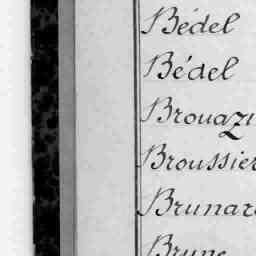 Bédel
Bédel
Brouazi
Broussier
Brunar
Brune